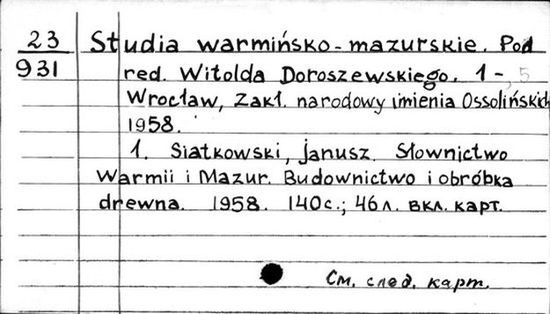 23
931
Studia warmińsko-mazurskie. Pod
red. Witolda Doroszewskiego. 1-, 5
Wrocław, Zakł. narodowy imienia Ossolińskich
1958.
1. Siatkowski, Janusz. Słownictwo
Warmii i Mazur. Budownictwo i obróbka
drewna. 1958. 140с.; 46л. вкл. карт.
См. след. карт.